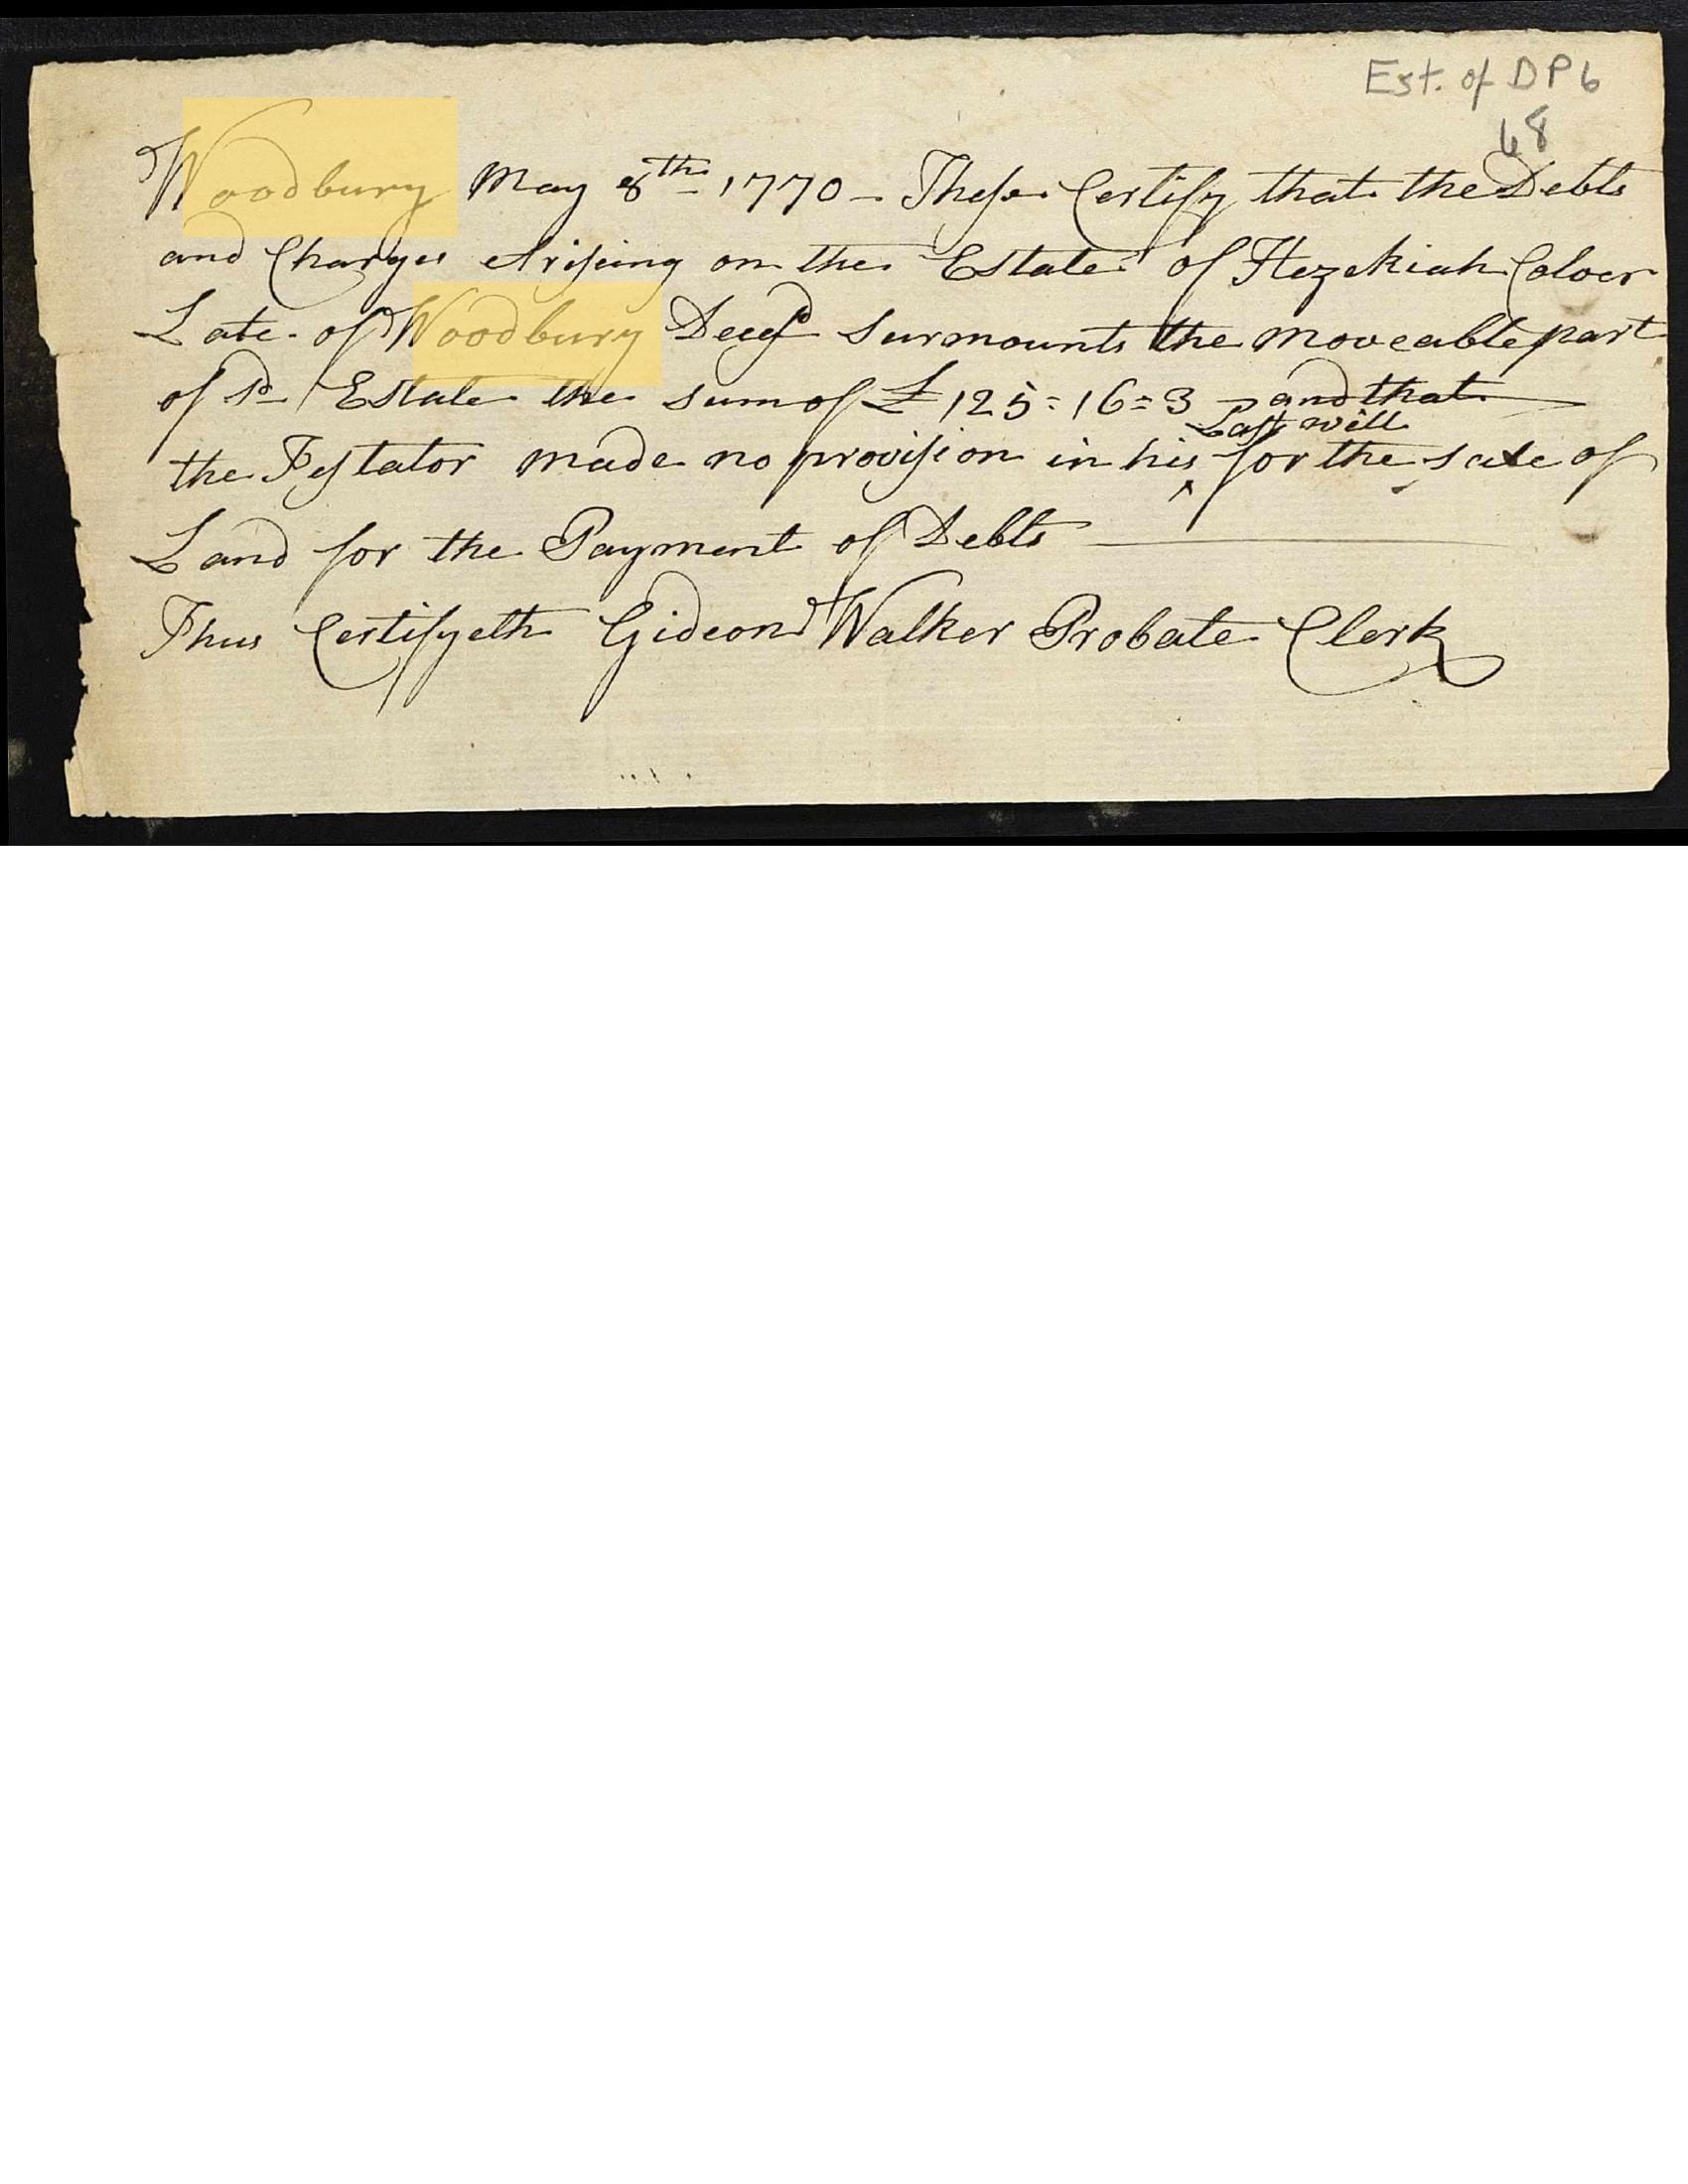 Est. of DP6
68
Woodbury May 8th 1770 - These Certify that the Debts
and Charges Ariseing on the Estate of Hezekiah Colver
Late of Woodbury Decesd Surmounts the moveable part
of sd Estate the sum of £125=16=3 - and that
Last will
the Testator made no provision in his ^ for the sale of
Land for the Payment of Debts
Thus Certifyeth Gideon Walker Probate Clerk